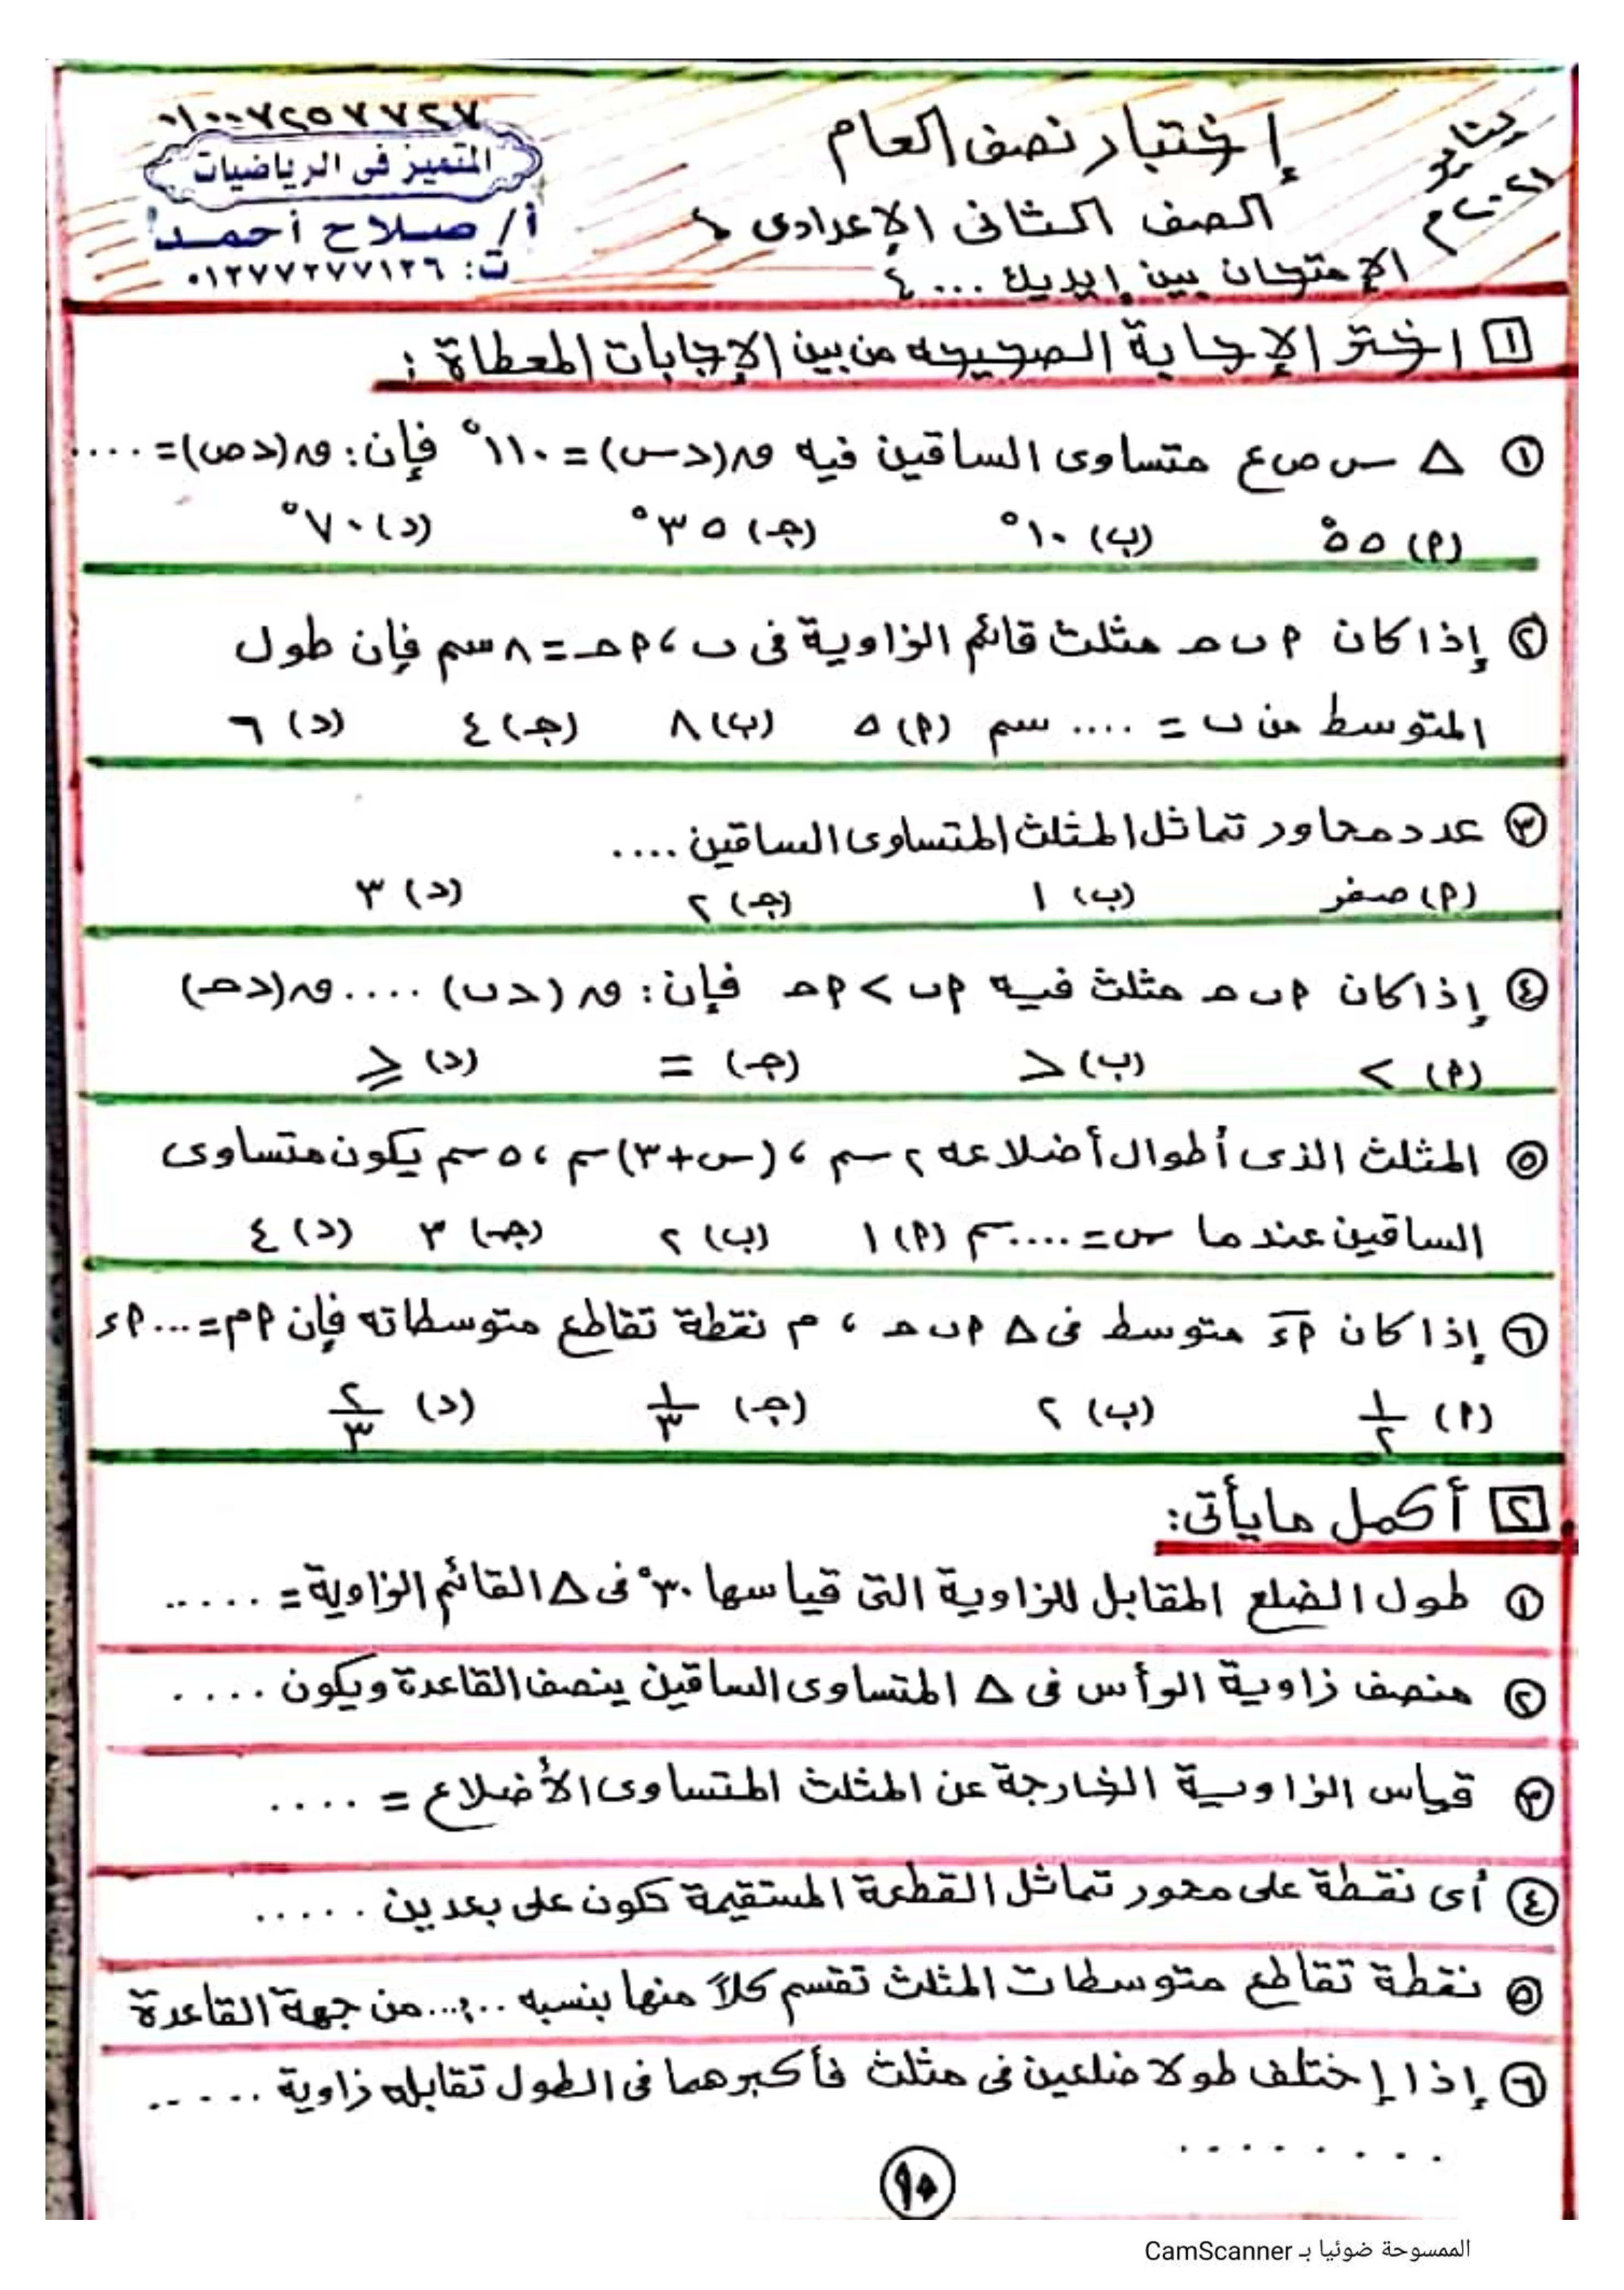 يناير
٢٠٢١م
إختبار نصف العام
الصف الثانى الإعدادى
الإمتحان بين إيديك ... ٤
٠١٠٠٧٢٥٧٧٢٧
المتميز فى الرياضيات
أ/ صلاح أحمد
ت: ٠١٢٧٧٢٧٧١٢٦
١ اختر الإجابة الصحيحه من بين الإجابات المعطاة :
① △ س ص ع متساوى الساقين فيه ق(∠س) = ١١٠° فإن : ق(∠ص) = ....
(أ) ٥٥° (ب) ١٠° (جـ) ٣٥° (د) ٧٠°
② إذا كان أ ب حـ مثلث قائم الزاوية فى ب ، أ حـ = ٨ سم فإن طول
المتوسط من ب = .... سم (أ) ٥ (ب) ٨ (جـ) ٤ (د) ٦
③ عدد محاور تماثل المثلث المتساوى الساقين ....
(أ) صفر (ب) ١ (جـ) ٢ (د) ٣
④ إذا كان أ ب حـ مثلث فيه أ ب > أ حـ فإن : ق(∠ب) .... ق(∠حـ)
(أ) > (ب) < (جـ) = (د) ≥
⑤ المثلث الذى أطوال أضلاعه ٢ سم ، (س+٣) سم ، ٥ سم يكون متساوى
الساقين عندما س = .... سم (أ) ١ (ب) ٢ (جـ) ٣ (د) ٤
⑥ إذا كان أء متوسط فى △ أ ب حـ ، م نقطة تقاطع متوسطاته فإن أم = ... أء
(أ) ١/٢ (ب) ٢ (جـ) ١/٣ (د) ٢/٣
٢ أكمل مايأتى:
① طول الضلع المقابل للزاوية التى قياسها ٣٠° فى △ القائم الزاوية = .....
② منصف زاوية الرأس فى △ المتساوى الساقين ينصف القاعدة ويكون ....
③ قياس الزاوية الخارجة عن المثلث المتساوى الأضلاع = ....
④ أى نقطة على محور تماثل القطعة المستقيمة تكون على بعدين .....
⑤ نقطة تقاطع متوسطات المثلث تقسم كلاً منها بنسبه ...:... من جهة القاعدة
⑥ إذا إختلف طولا ضلعين فى مثلث فأكبرهما فى الطول تقابله زاوية .....
........
٩٥
الممسوحة ضوئيا بـ CamScanner